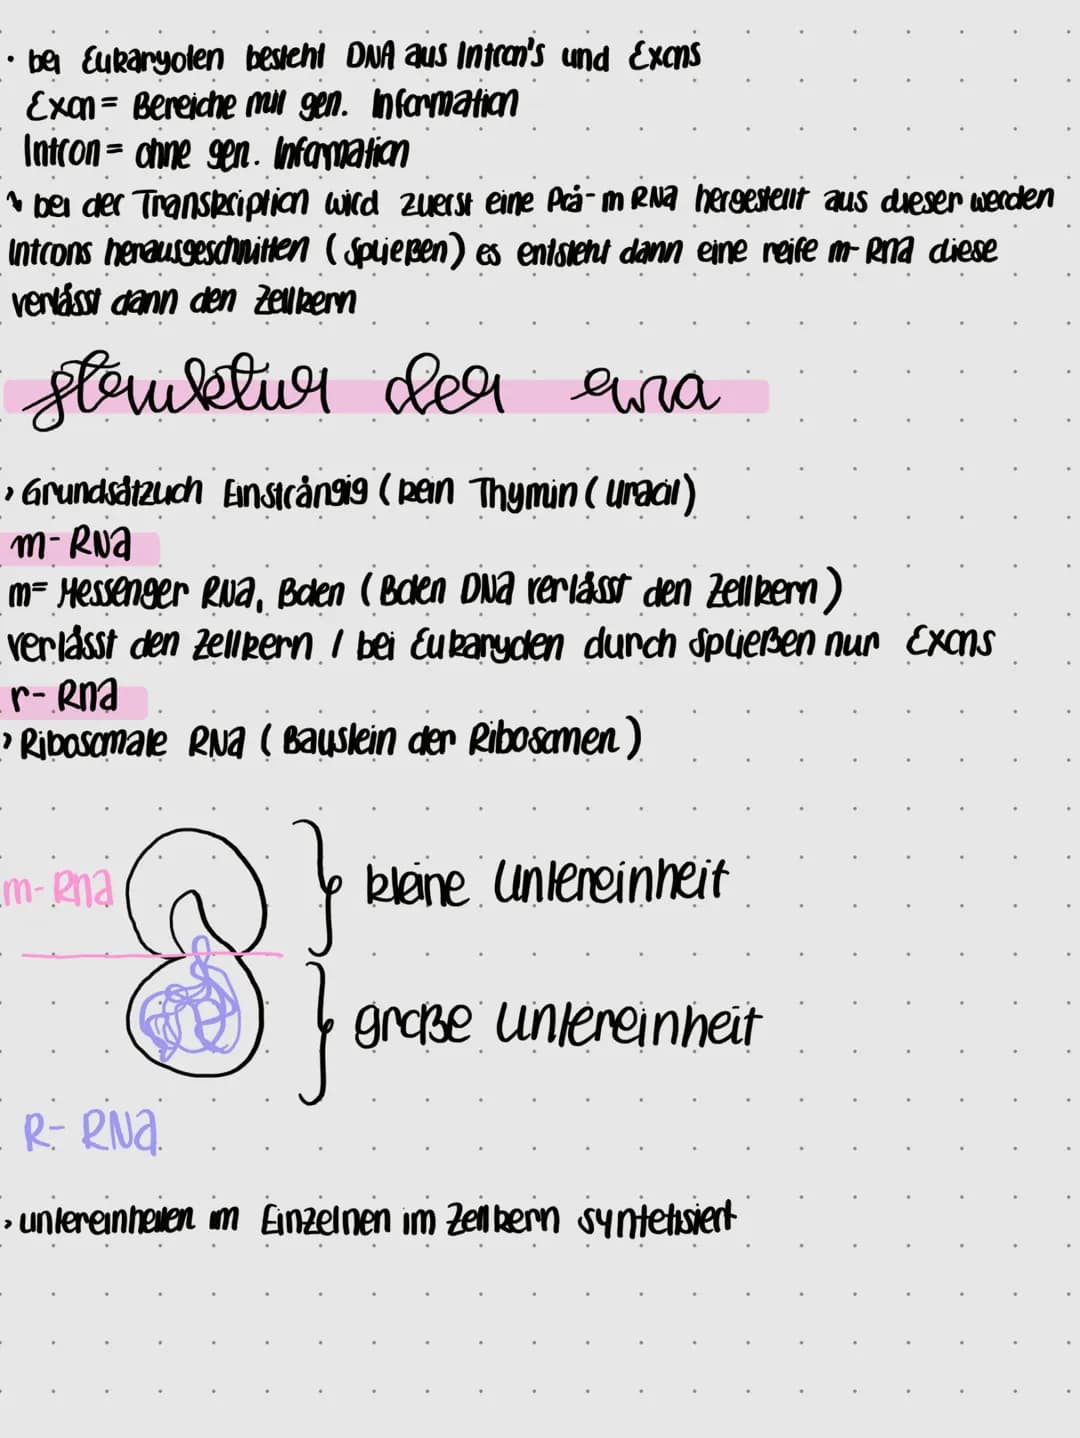 · bei Eukaryoten besteht DNA aus Intron's und Exons
Exon = Bereiche mit gen. Information
Intron = ohne gen. Information
bei der Transkription wird zuerst eine Prä-m RNA hergestellt aus dieser werden
Introns herausgeschnitten (Spließen) es entsteht dann eine reife m-RNA diese
verlässt dann den Zellkern
Struktur der RNA
> Grundsätzlich Einsträngig (kein Thymin (Uracil)
m-RNA
m= Messenger RNA, Boten (Boten DNA verlässt den Zellkern)
verlässt den Zellkern / bei Eukaryoten durch Spließen nur Exons
r-RNA
> Ribosomale RNA (Baustein der Ribosomen)
m-RNA
kleine Untereinheit
große Untereinheit
R-RNA
> untereinheiten im Einzelnen im Zellkern syntetisiert